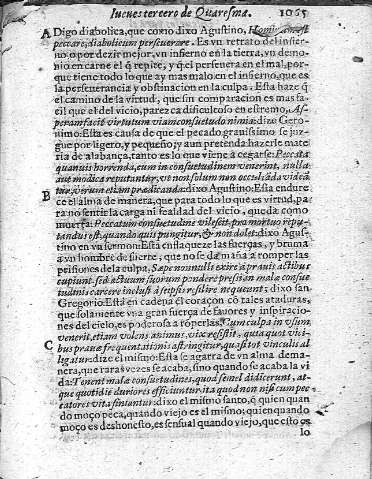 Iueues tercero de Quaresma. 1065
A Digo diabolica, que como dixo Agustino, Hominum est
peccare, diabolicum perseuerare. Es vn retrato del infier-
no, o por dezir mejor, vn infierno en la tierra, y vn demo-
nio en carne el q̃ repite, y q̃ el perseuera en el mal, por-
que tiene todo lo que ay mas malo en el infierno, que es
la perseuerancia y obstinacion en la culpa. Esta haze q̃
el camino de la virtud, que sin comparacion es mas fa-
cil que el del vicio, parezca dificultoso en estremo, As-
peram facit virtutum viam consuetudo nimia: dixo Gero-
nimo: Esta es causa de que el pecado grauissimo se juz-
gue por ligero, y pequeño, y aun pretenda hazerle mate
ria de alabança, tanto es lo que viene a cegarse: Peccata
quamuis horrenda, cum in consuetudinem venerint, nulla
aut modica reputantur, vt non solum non occulãda videã
B tur, verum etiam prædicanda: dixo Agustino: Esta endure
ce el alma de manera, que para todo lo que es virtud, pa
ra no sentir la carga ni fealdad del vicio, queda como
muerta: Peccatum consuetudine vilescit, pro mortuo repu-
tandũ est, quando quis pungitur, & non dolet: dixo Agus-
tino en vn sermon: Esta enflaqueze las fuerças, y bruma
a vn hombre de suerte, que no se da maña a romper las
prisiones de la culpa, Sæpe nonnulli exire à prauis actibus
cupiunt, sed actuum suorum pondere pressi in malæ consue
tudinis carcere inclusi à se ipsis exilire nequeunt: dixo san
Gregorio: Esta encadena el coraçon cõ tales ataduras,
que solamente vna gran fuerça de fauores y inspiracio-
nes del cielo, es poderosa a romperlas. Cum culpa in vsum
venerit, etiam volens animus, vix resistit, quia quot vici-
C bus prauæ frequentationis astringitur, quasi tot vinculis al
ligatur: dize el mismo: Esta se agarra de vn alma de ma-
nera, que raras vezes se acaba, sino quando se acaba la vi
da: Tenent malæ consuetudines, quod semel didicerint, at-
que quotidie duriores efficiuntur, ita quod non nisi cum pec-
catoris vita finiantur: dixo el mismo santo, q̃ quien quan
do moço peca, quando viejo es el mismo; quien quando
moço es deshonesto, es sensual quando viejo, que esto es
lo